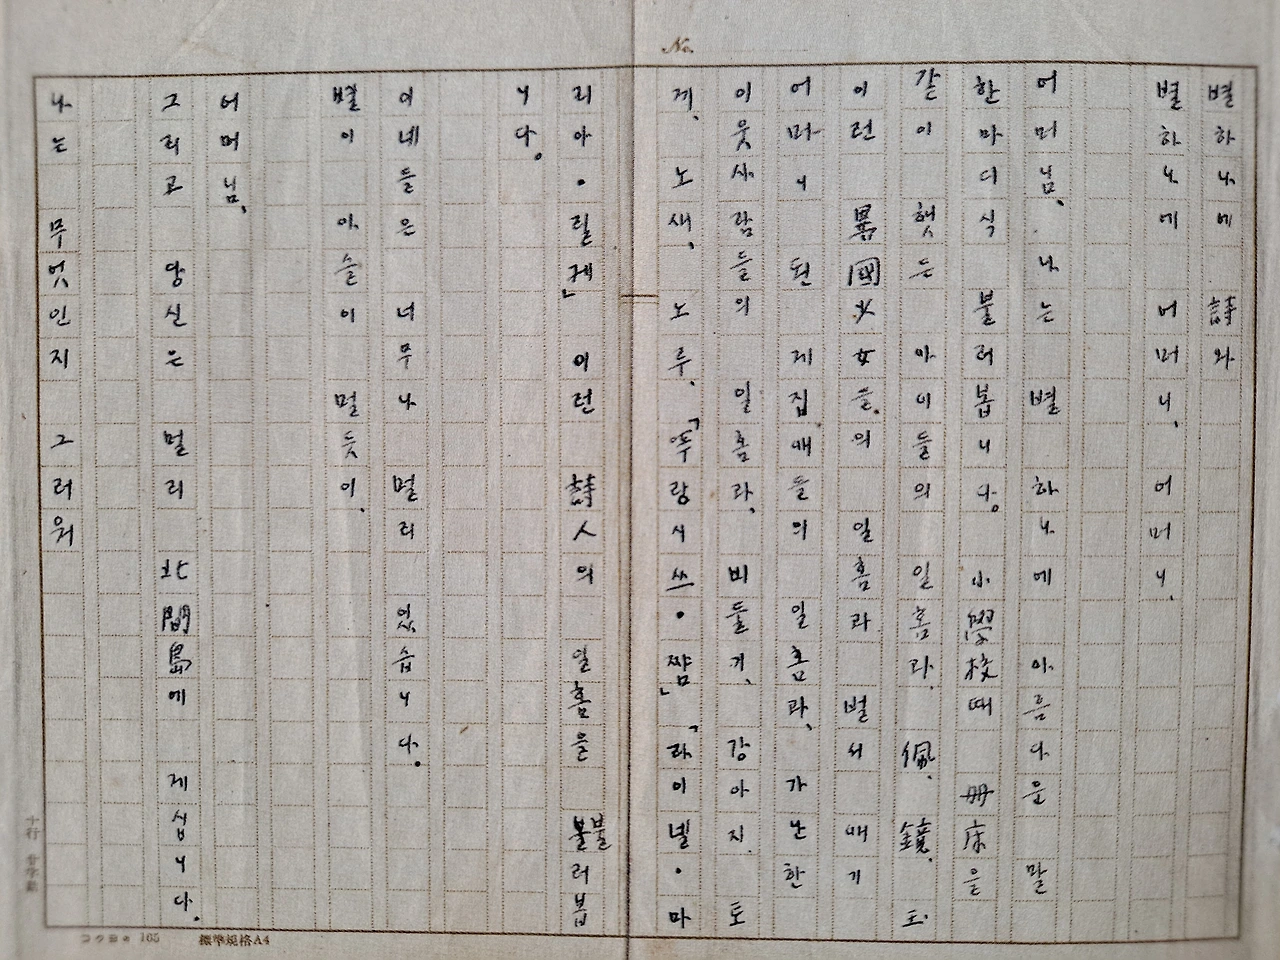 별하나에 詩와
별하나에 어머니, 어머니,
어머님, 나는 별 하나에 아름다운 말
한마디식 불러봅니다. 小學校때 册床을
같이 햇든 아이들의 일홈과, 佩, 鏡, 玉
이런 異國少女들의 일홈과 벌서 애기
어머니 된 게집애들의 일홈과, 가난한
이웃사람들의 일홈과, 비둘기, 강아지, 토
끼, 노새, 노루, 「푸랑시쓰・쨤」 「라이넬・마
리아・릴케」 이런 詩人의 일홈을 불러봅
니다.
이네들은 너무나 멀리 있습니다.
별이 아슬이 멀듯이,
어머님,
그리고 당신은 멀리 北間島에 게십니다.
나는 무엇인지 그러워
No.
コクヨ 165 標準規格A4